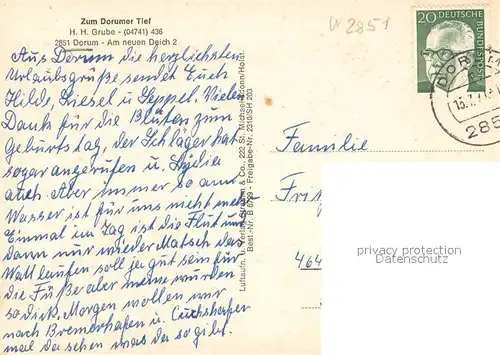 Zum Dorumer Tief
H. H. Grube - (04741) 436
2851 Dorum - Am neuen Deich 2
W 2851
20 DEUTSCHE BUNDESPOST
DORUM
15.7.
285
Aus Dorum die herzlichsten
Urlaubsgrüße sendet Euch
Hilde, Liesel u Seppel. Vielen
Dank für die Blüten zum
Geburtstag, der Schläger hat
sogar angerufen u. Lydia
auch. Aber immer so am
Wasser ist für uns nicht mehr
Einmal im Tag ist die Flut und
dann nur wieder Matsch das
Wattlaufen soll ja gut sein für
die Füße aber meine würden
so dick, Morgen wollen wir
nach Bremerhafen u. Cuxhafen
mal da sehen was da so gibt.
Luftaufn. u. Verlag: & Co., 222 St. Michaelisdonn/Holst.
Best.-Nr.: B 6729 - Freigabe-Nr. 2310/SH 203
Familie
464
privacy protection
Persönlichkeitsschutz